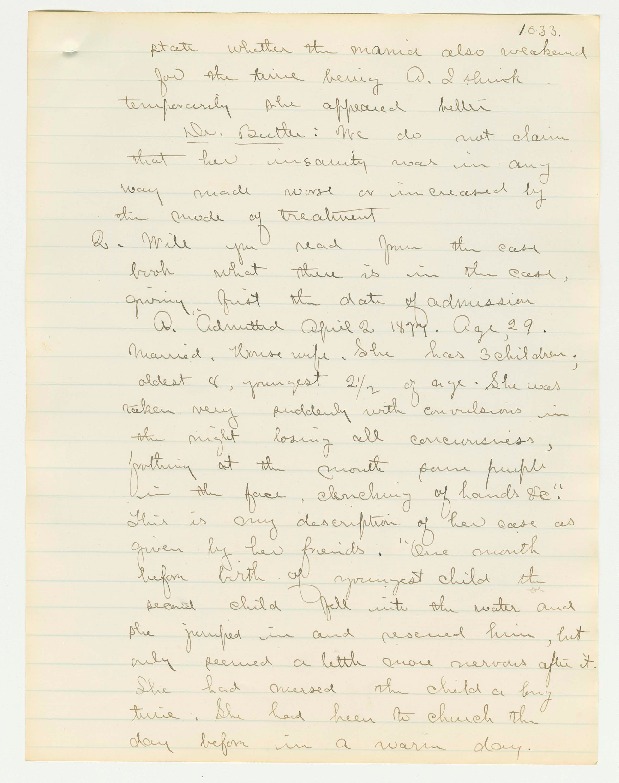 1033.
state whether the mania also weakened
for the time being A. I think
temporarily she appeared better
Dr. Butler: We do not claim
that her insanity was in any
way made worse or increased by
the mode of treatment
Q. Will you read from the case
book what there is in the case,
giving first the date of admission
A. "Admitted April 2 1877. Age, 29.
Married. House wife. She has 3 children;
oldest 8, youngest 2 1/2 of age. She was
taken very suddenly with convulsions in
the night losing all conciousness,
frothing at the mouth some purple
in the face, clenching of hands &c".
This is my description of her case as
given by her friends. "One month
before birth of youngest child the
second child fell into the water and
she jumped in and rescued him, but
only seemed a little more nervous after it.
She had nursed the child a long
time. She had been to church the
day before in a warm day.